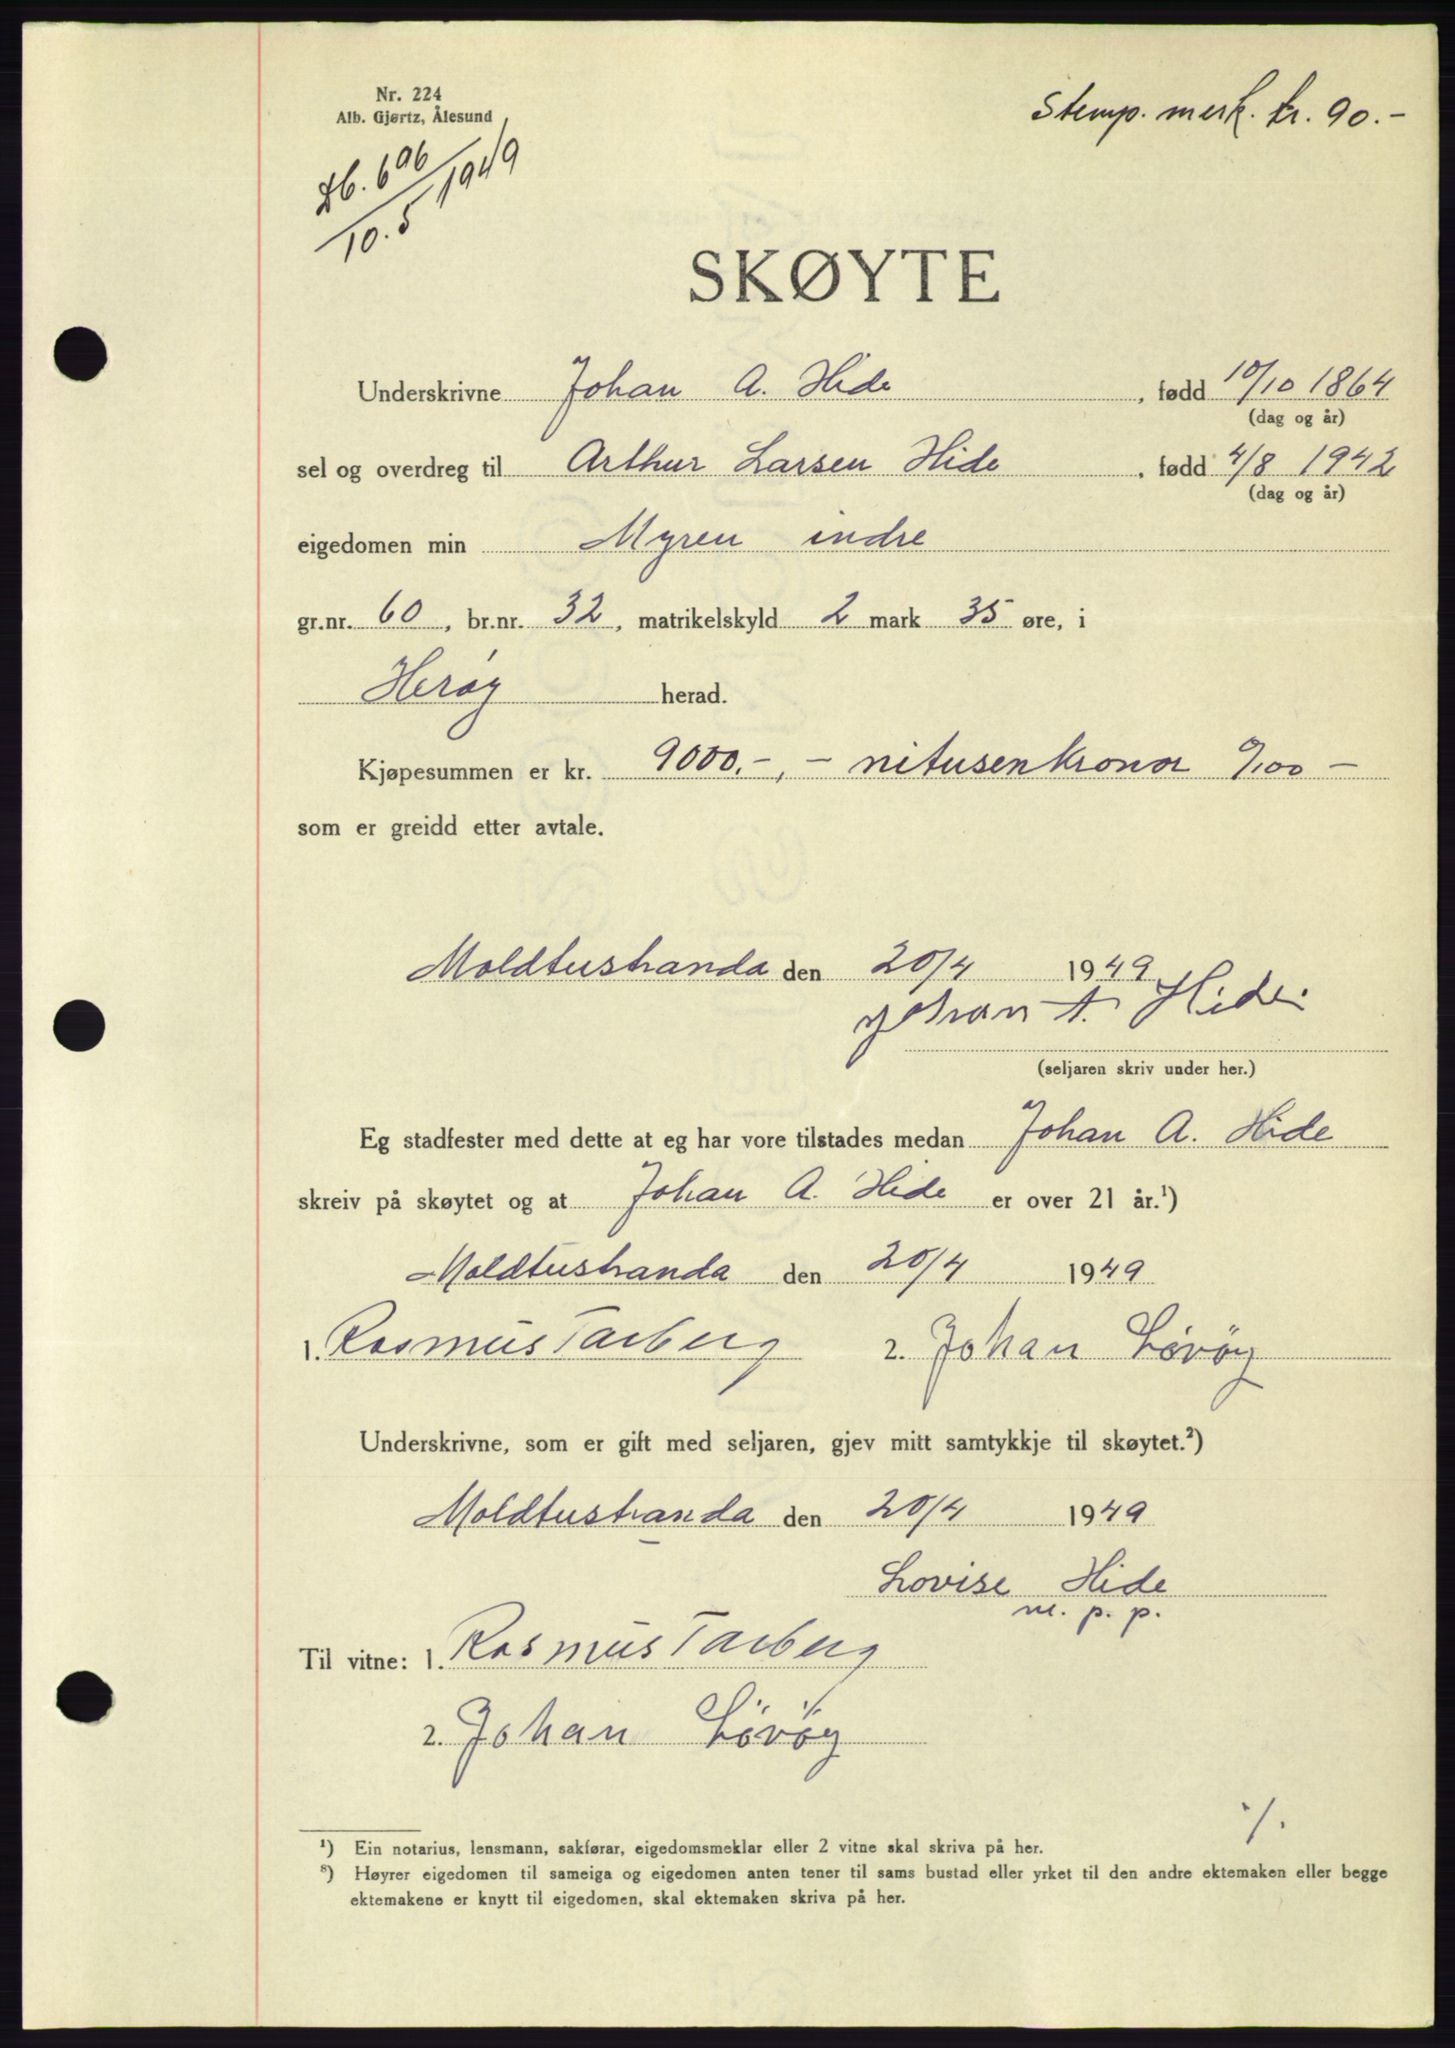 Nr. 224
Alb. Gjørtz, Ålesund
Stemp. merk. kr. 90.-
Db. 696
10.5 1949
SKØYTE
Underskrivne Johan A. Hide, fødd 10/10 1864
(dag og år)
sel og overdreg til Arthur Larsen Hide, fødd 4/8 1942
(dag og år)
eigedomen min Myren indre
gr.nr. 60, br.nr. 32, matrikelskyld 2 mark 35 øre, i
Herøy herad.
Kjøpesummen er kr. 9000.-, - nitusenkronor 0/00 -
som er greidd etter avtale.
Moldtustranda den 20/4 1949
Johan A. Hide.
(seljaren skriv under her.)
Eg stadfester med dette at eg har vore tilstades medan Johan A. Hide
skreiv på skøytet og at Johan A. Hide er over 21 år.¹)
Moldtustranda den 20/4 1949
1. Rasmus Tarberg 2. Johan Løvöy
Underskrivne, som er gift med seljaren, gjev mitt samtykkje til skøytet.²)
Moldtustranda den 20/4 1949
Lovise Hide
m. p. p.
Til vitne: 1. Rasmus Tarberg
2. Johan Løvöy
·/.
¹) Ein notarius, lensmann, sakførar, eigedomsmeklar eller 2 vitne skal skriva på her.
⁸) Høyrer eigedomen til sameiga og eigedomen anten tener til sams bustad eller yrket til den andre ektemaken eller begge
ektemakene er knytt til eigedomen, skal ektemaken skriva på her.